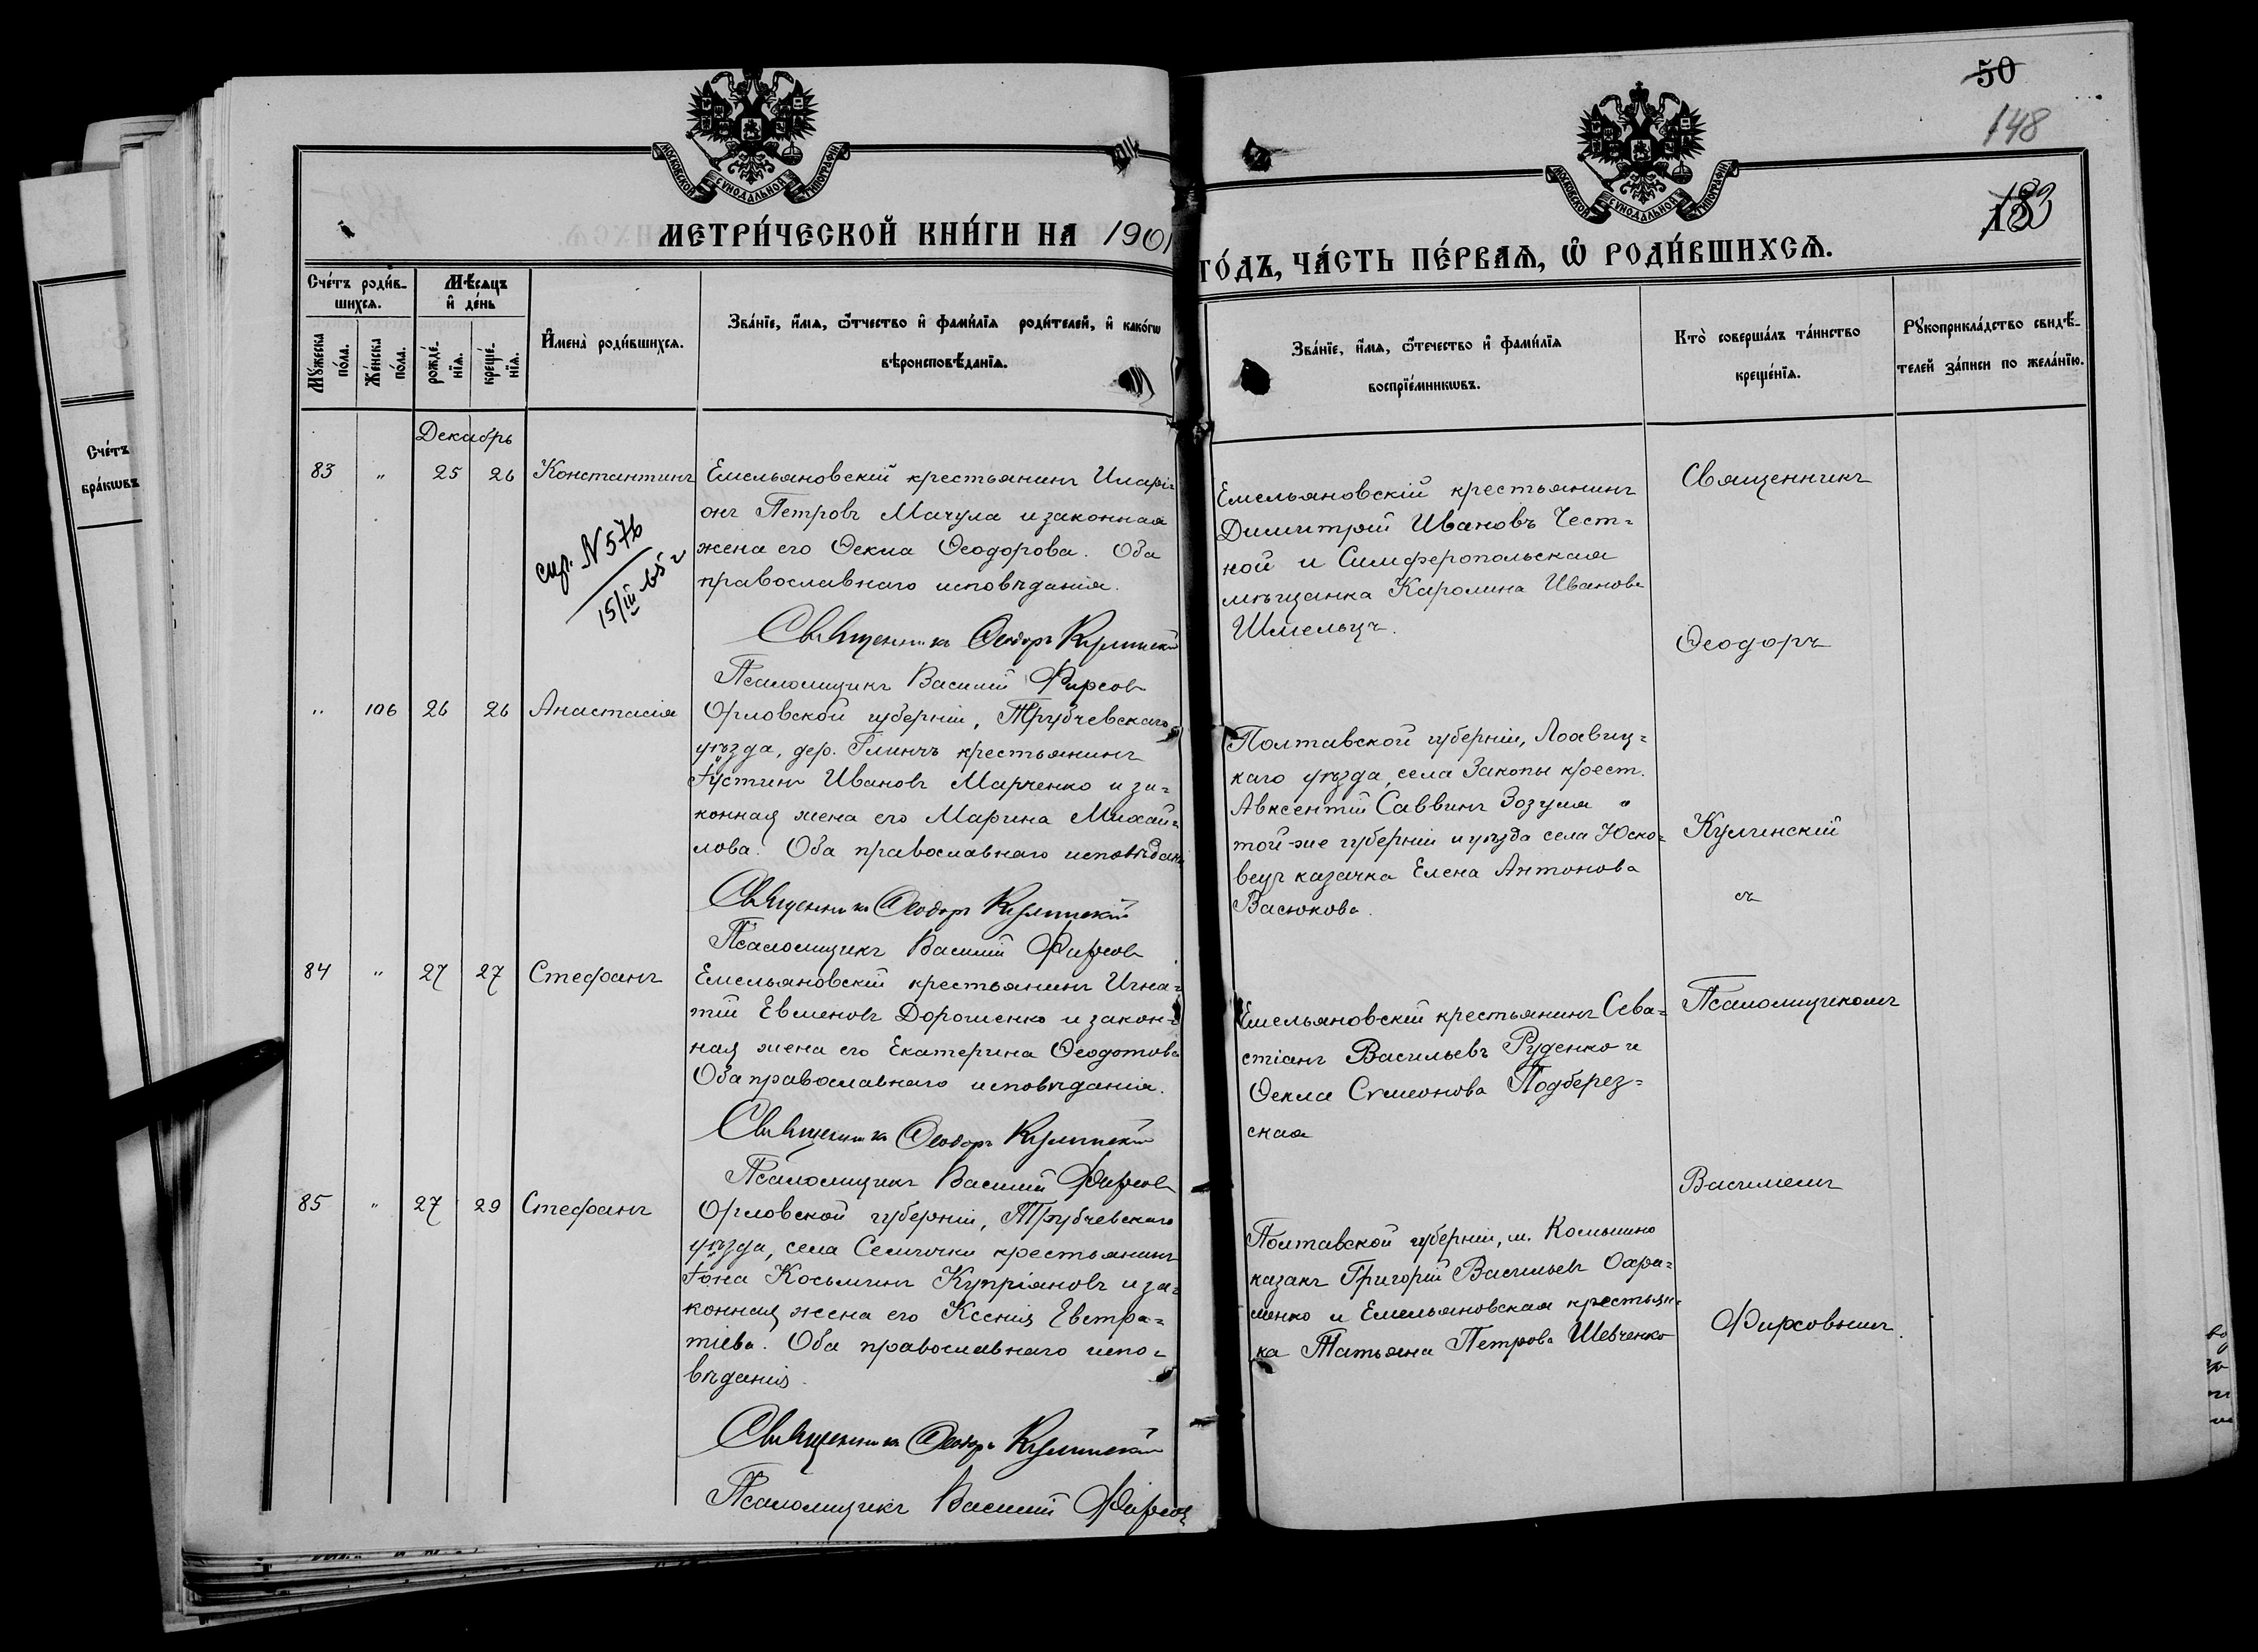 50
148
183
МОСКОВСКОЙ СѴНОДАЛЬНОЙ ТИПОГРАФІИ
МОСКОВСКОЙ СѴНОДАЛЬНОЙ ТИПОГРАФІИ
МЕТРИ́ЧЕСКОЙ КНИ́ГИ НА 1901
ГО́ДЪ, ЧА́СТЬ ПЕ́РВАѦ, Ѡ҆ РОДИ́ВШИХСѦ.
Сче́тъ роди́в-
шихсѧ.
Мꙋ́жеска по́ла.
Же́нска по́ла.
Мѣ́сѧцъ
и҆ де́нь
рожде́-
нїѧ.
креще́-
нїѧ.
И҆мена̀ роди́вшихсѧ.
Зва́нїе, и҆́мѧ, ѻ҆́тчество и҆ фами́лїѧ роди́телей, и҆ како́гѡ
вѣроисповѣ́данїѧ.
Зва́нїе, и҆́мѧ, ѻ҆те́чество и҆ фами́лїѧ
воспрїе́мникѡвъ.
Кто̀ соверша́лъ та́инство
креще́нїѧ.
Рꙋкоприкла́дство свидѣ́-
телей за́писи по жела́нїю.
Сче́тъ
бра́кѡвъ
Декабрь
83 " 25 26 Константинъ
Емельяновскій крестьянинъ Иларі-
онъ Петровъ Мачула и законная
жена его Ѳекла Ѳеодорова. Оба
православнаго исповѣданія.
Священникъ Ѳеодоръ Кулинскій
Псаломщикъ Василій Фирсовъ
спр. N 576
15/III 65 г
Емельяновскій крестьянинъ
Димитрій Ивановъ Чест-
ной и Симферопольская
мѣщанка Каролина Иванова
Шмельцъ.
" 106 26 26 Анастасія
Орловской губерніи, Трубчевскаго
уѣзда, дер. Глинчъ крестьянинъ
Іустинъ Ивановъ Марченко и за-
конная жена его Марина Михай-
лова. Оба православнаго исповѣдан
Священникъ Ѳеодоръ Кулинскій
Псаломщикъ Василій Фирсовъ
Полтавской губерніи, Лохвиц-
каго уѣзда, села крест.
Авксентій Саввинъ Зозуля и
той-же губерніи и уѣзда села Юско-
вецъ казачка Елена Антонова
Васюкова.
84 " 27 27 Стефанъ
Емельяновскій крестьянинъ Игна-
тій Евменовъ Дорошенко и закон-
ная жена его Екатерина Ѳеодотова
Оба православнаго исповѣданія.
Священникъ Ѳеодоръ Кулинскій
Псаломщикъ Василій Фирсовъ
Емельяновскій крестьянинъ Сева-
стіанъ Васильевъ Руденко и
Ѳекла Сѵмеонова Подберез-
ская
85 " 27 29 Стефанъ
Орловской губерніи, Трубчевскаго
уѣзда, села Селичочки крестьянинъ
Іона Косьминъ Купріяновъ и за-
конная жена его Ксенія Евстра-
тіева. Оба православнаго испо-
вѣданія.
Священникъ Ѳеодоръ Кулинскій
Псаломщикъ Василій Фирсовъ
Полтавской губерніи, м. Комышно
казакъ Григорій Васильевъ
и Емельяновская крестьян-
ка Татьяна Петрова Шевченко
Священникъ
Ѳеодоръ
Кулинскій
съ
Псаломщикомъ
Василіемъ
Фирсовымъ.